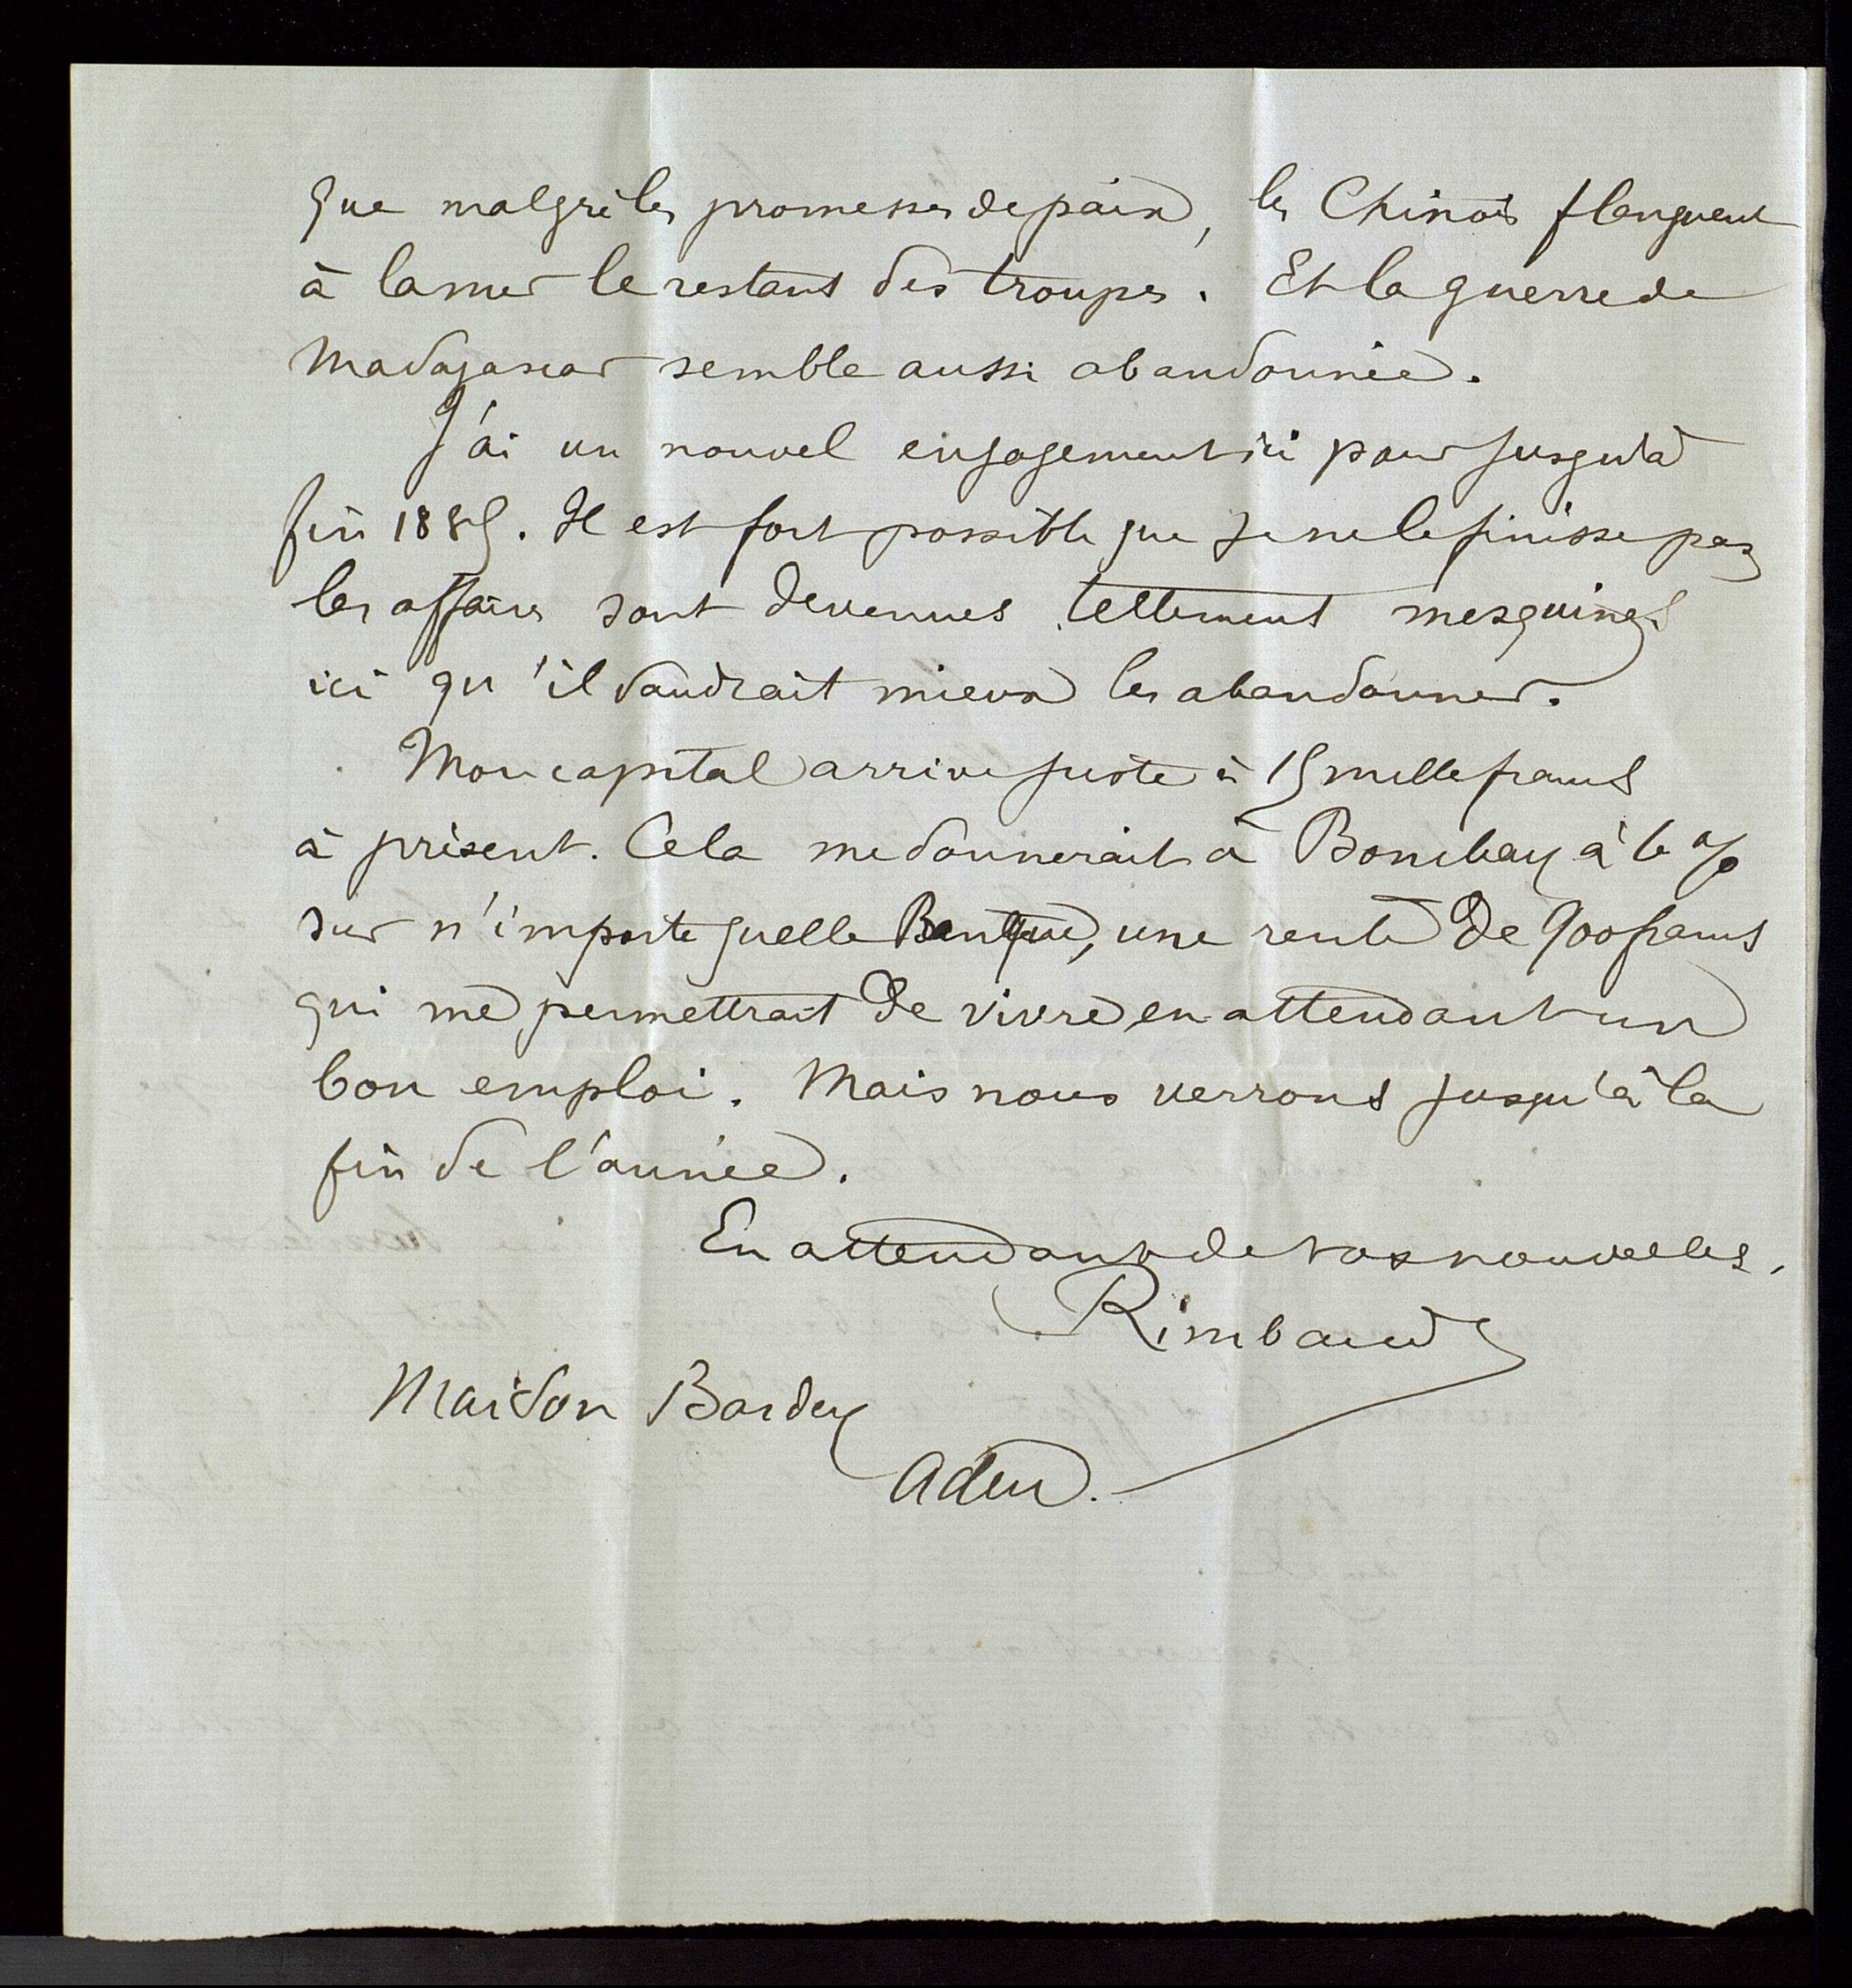 que malgré les promesses de paix, les Chinois flanquent
à la mer le restant des troupes. Et la guerre de
Madagascar semble aussi abandonnée.
J'ai un nouvel engagement ici pour jusqu'à
fin 1885. Il est fort possible que je ne le finisse pas
les affaires sont devenues tellement mesquines
ici qu'il vaudrait mieux les abandonner.
Mon capital arrive juste à 15 mille francs
à présent. Cela me donnerait à Bombay à 6 %
sur n'importe quelle Banque, une rente de 900 francs
qui me permettrait de vivre en attendant un
bon emploi. Mais nous verrons jusqu'à la
fin de l'année.
En attendant de vos nouvelles,
Rimbaud
Maison Bardey
Aden.